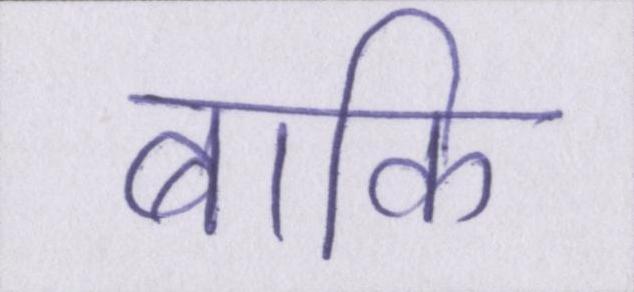 बाकि